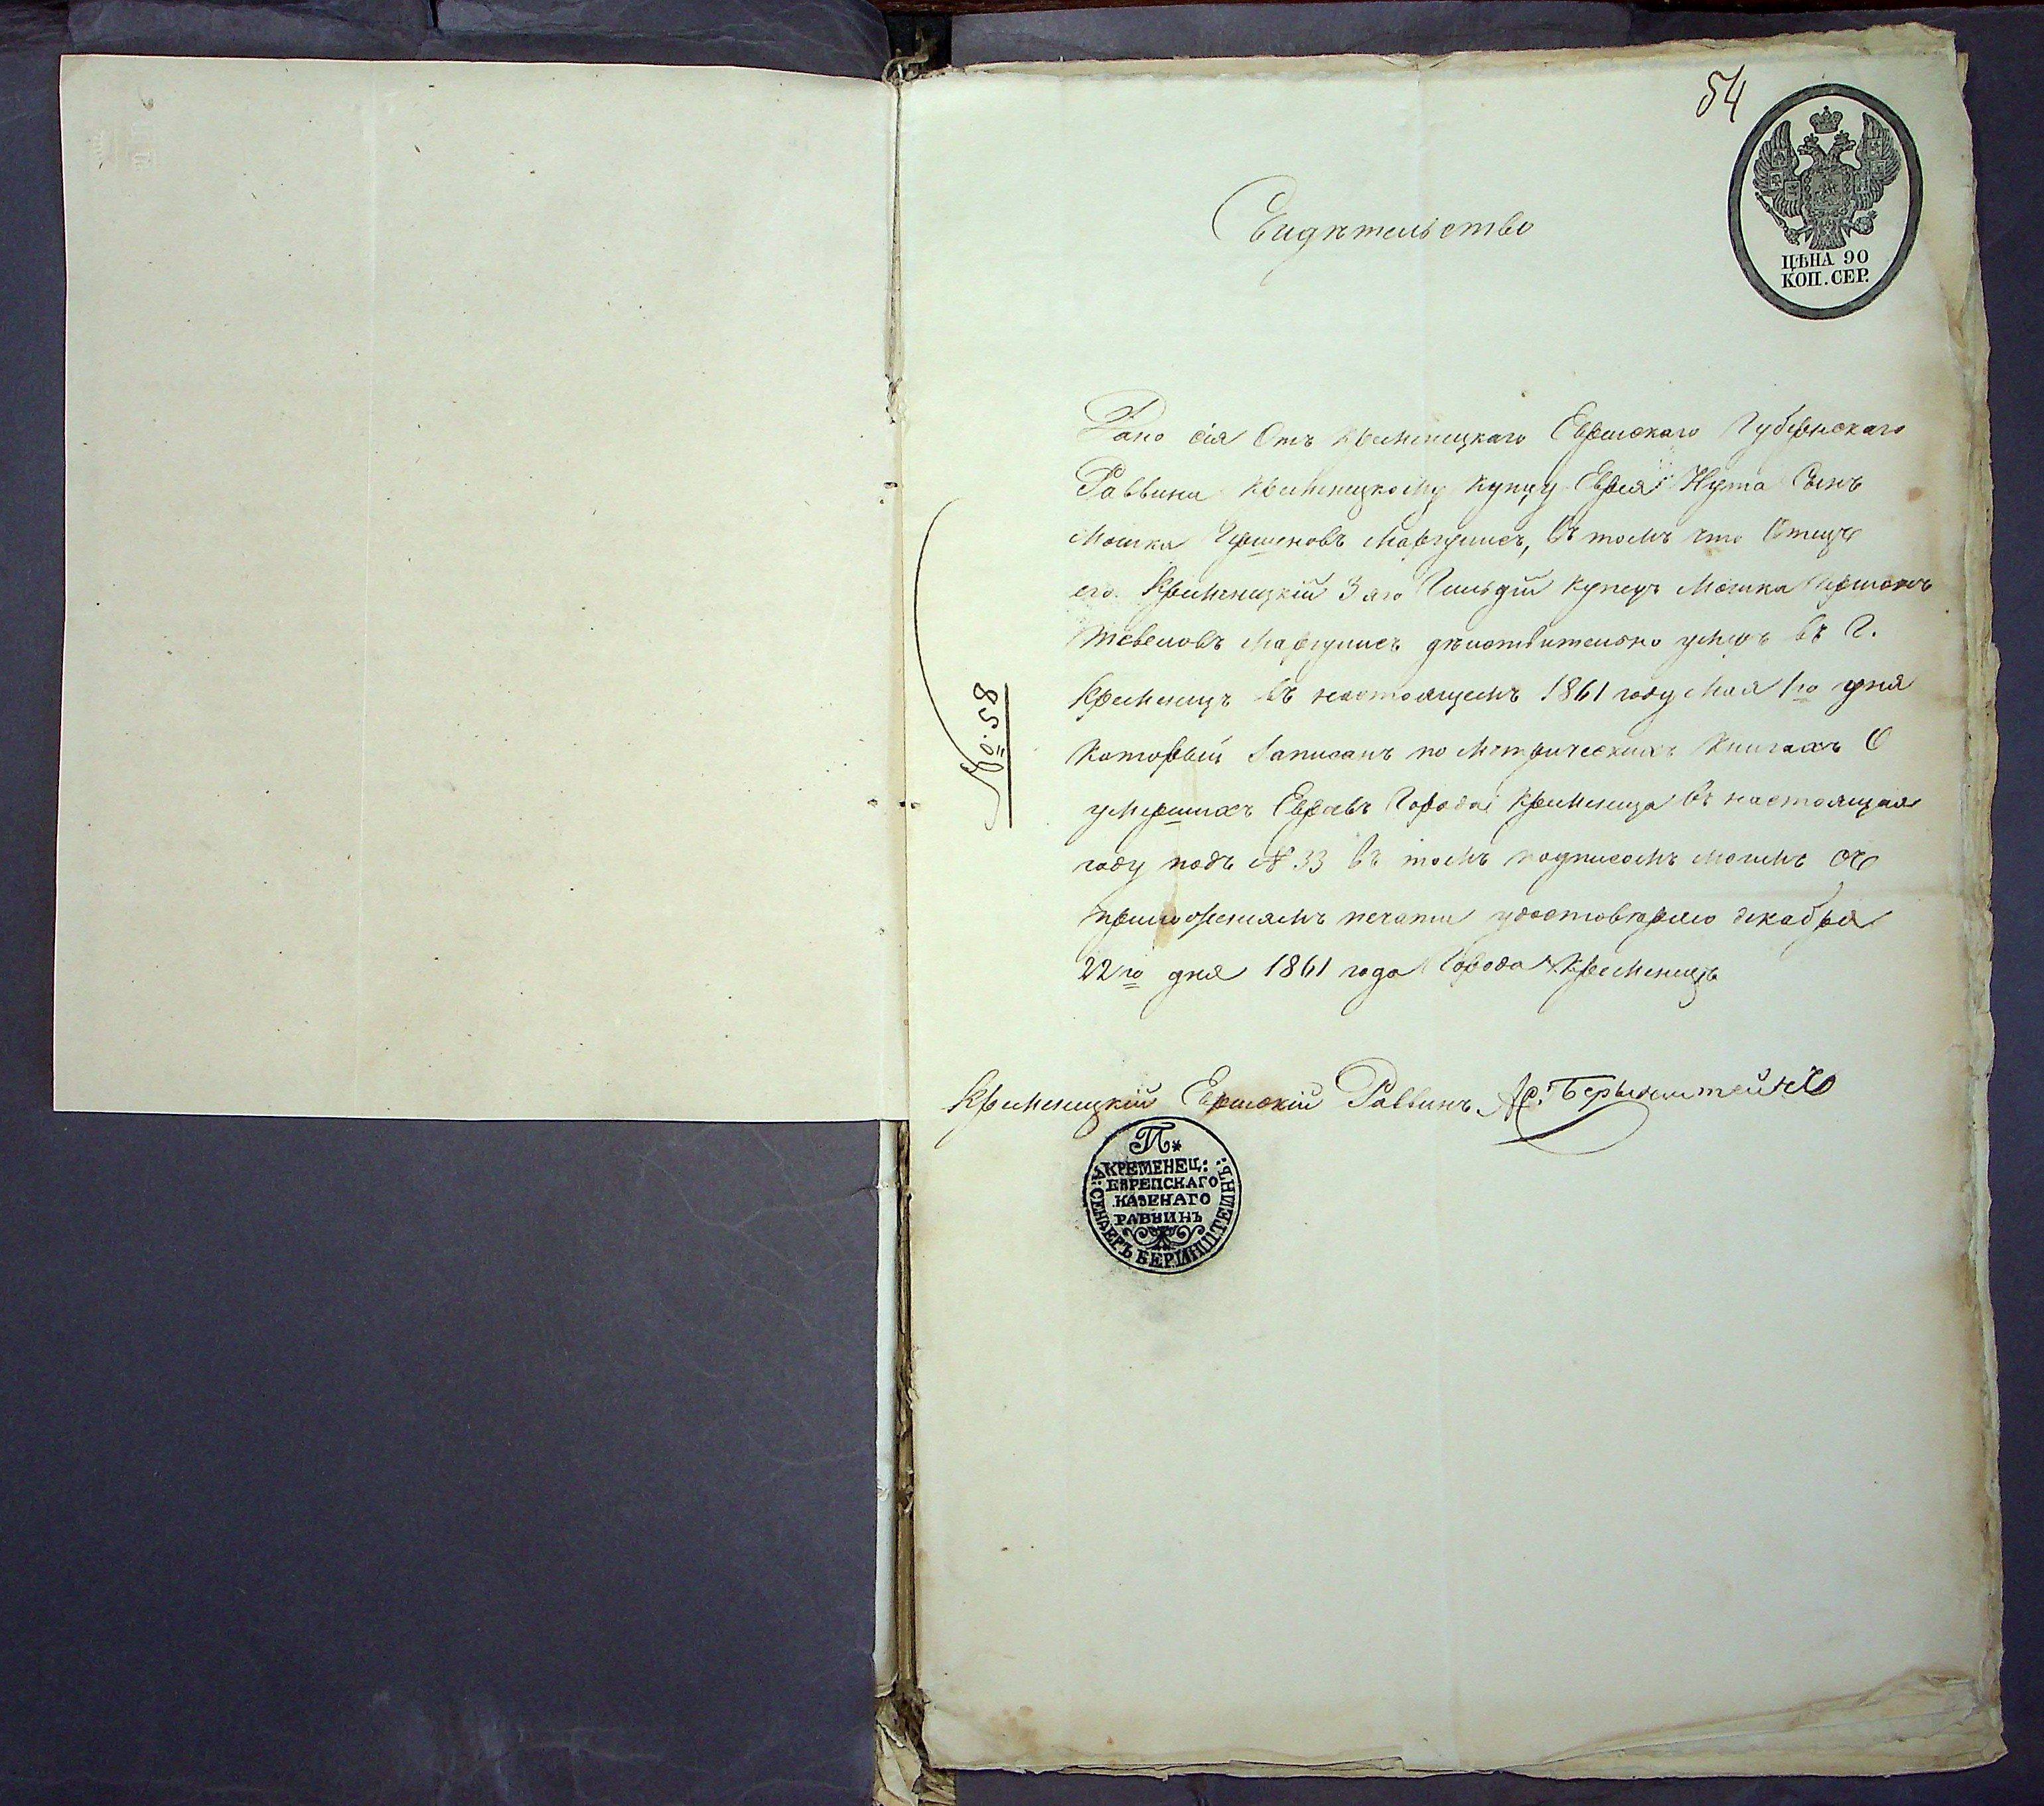 54
ЦѢНА 90
КОП. СЕР.
Свидѣтельство
Дано сія Отъ Кременецкаго Еврейскаго Губернскаго
Раввина Кременецкому купцу Еврея Нута Сынъ
Мошка Гершковъ Маргулисъ, въ томъ что Отецъ
его Кременецкій 3 яго Гильдіи Купецъ Мошка Гершонъ
Тевеловъ Маргулисъ дѣйствительно умеръ въ Г.
Кременцъ въ настоящемъ 1861 году Мая 1го дня
Который Записанъ по Метрическихъ Книгахъ О
умершихъ Евреевъ Города Кременца въ настоящая
году подъ № 33 въ томъ подписомъ моимъ съ
приложеніямъ печати удостовѣряю декабря
22го дня 1861 года Города Кременцъ
No. 58
Кременецкій Еврейскій Раввинъ Бернштейнъ
П*
КРЕМЕНЕЦ:
ЕВРЕПСКАГО
КАЗЕНАГО
РАВВИНЪ
А: СЕНДЕРЪ БЕРИНШТЕИНЪ: